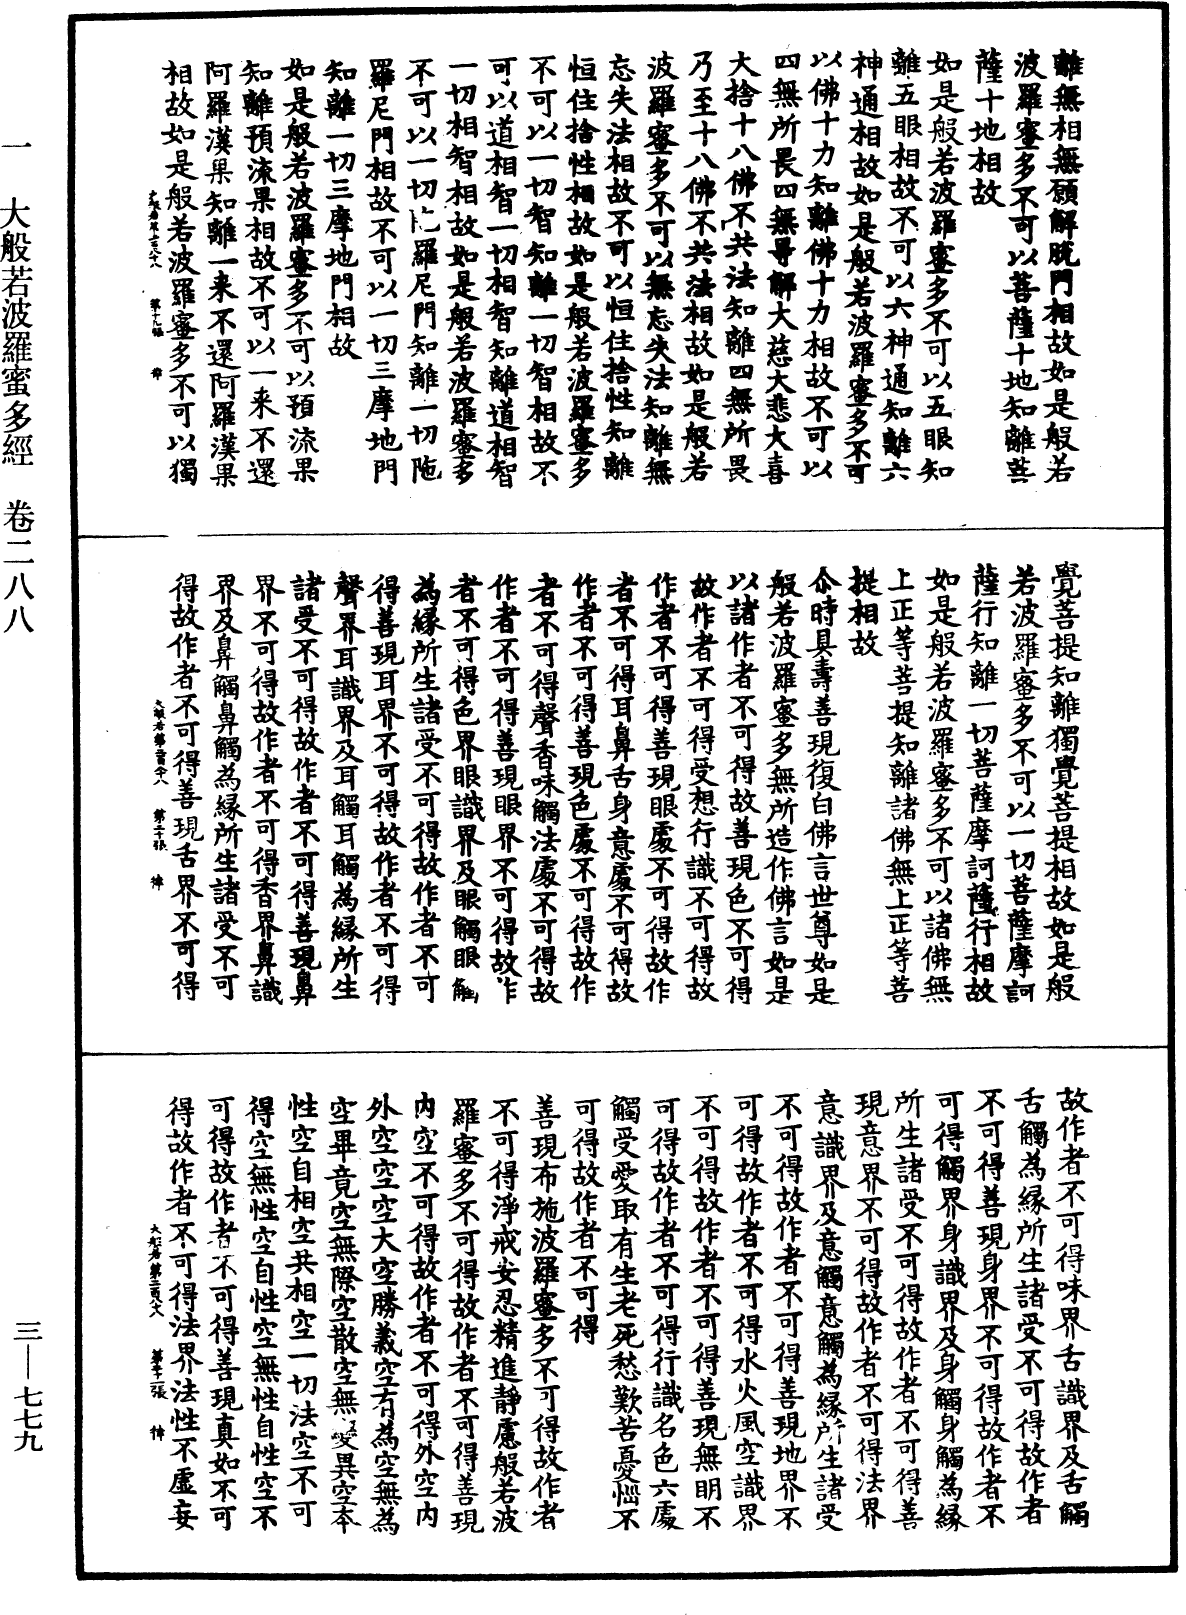 離無相無願解脫門相故如是般若
波羅蜜多不可以菩薩十地知離菩
薩十地相故
如是般若波羅蜜多不可以五眼知
離五眼相故不可以六神通知離六
神通相故如是般若波羅蜜多不可
以佛十力知離佛十力相故不可以
四無所畏四無导解大慈大悲大喜
大捨十八佛不共法知離四無所畏
乃至十八佛不共法相故如是般若
波羅蜜多不可以無忘失法知離無
忘失法相故不可以恒住捨性知離
恒住捨性相故如是般若波羅蜜多
不可以一切智知離一切智相故不
可以道相智一切相智知離道相智
一切相智相故如是般若波羅蜜多
不可以一切陁羅尼門知離一切陁
羅尼門相故不可以一切三摩地門
知離一切三摩地門相故
如是般若波羅蜜多不可以預流果
知離預流果相故不可以一来不還
阿羅漢果知離一来不還阿羅漢果
相故如是般若波羅蜜多不可以獨
第十九張
覺菩提知離獨覺菩提相故如是般
若波羅蜜多不可以一切菩薩摩訶
薩行知離一切菩薩摩訶薩行相故
如是般若波羅蜜多不可以諸佛無
上正等菩提知離諸佛無上正等菩
提相故
尒時具壽善現復白佛言世尊如是
般若波羅蜜多無所造作佛言如是
以諸作者不可得故善現色不可得
故作者不可得受想行識不可得故
作者不可得善現眼處不可得故作
者不可得耳鼻舌身意處不可得故
作者不可得善現色處不可得故作
者不可得聲香味觸法處不可得故
作者不可得善現眼界不可得故作
者不可得色界眼識界及眼觸眼觸
為緣所生諸受不可得故作者不可
得善現耳界不可得故作者不可得
聲界耳識界及耳觸耳觸為緣所生
諸受不可得故作者不可得善現鼻
界不可得故作者不可得香界鼻識
界及鼻觸鼻觸為緣所生諸受不可
得故作者不可得善現舌界不可得
第二十張
故作者不可得味界舌識界及舌觸
舌觸為緣所生諸受不可得故作者
不可得善現身界不可得故作者不
可得觸界身識界及身觸身觸為緣
所生諸受不可得故作者不可得善
現意界不可得故作者不可得法界
意識界及意觸意觸為緣所生諸受
不可得故作者不可得善現地界不
可得故作者不可得水火風空識界
不可得故作者不可得善現無明不
可得故作者不可得行識名色六處
觸受愛取有生老死愁歎苦憂惱不
可得故作者不可得
善現布施波羅蜜多不可得故作者
不可得淨戒安忍精進靜慮般若波
羅蜜多不可得故作者不可得善現
內空不可得故作者不可得外空內
外空空空大空勝義空有為空無為
空畢竟空無際空散空無變異空本
性空自相空共相空一切法空不可
得空無性空自性空無性自性空不
可得故作者不可得善現真如不可
得故作者不可得法界法性不虛妄
一 大般若波羅蜜多經 卷二八八
三—七七九